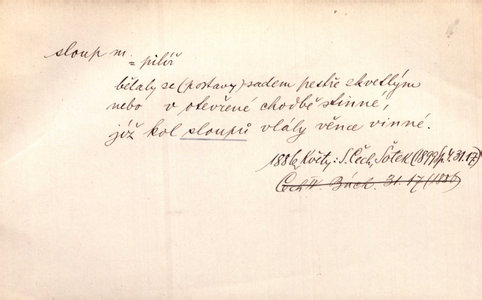 sloup m.
= pilíř
bělaly se (postavy) sadem pestře zkvetlým
nebo v otevřené chodbě stinné,
již kol sloupů vlály věnce vinné.
1886 Květy: S. Čech, Šotek (1899) p. 4. 31. 17)
Čech IV Bách. 31. 17 (1886)